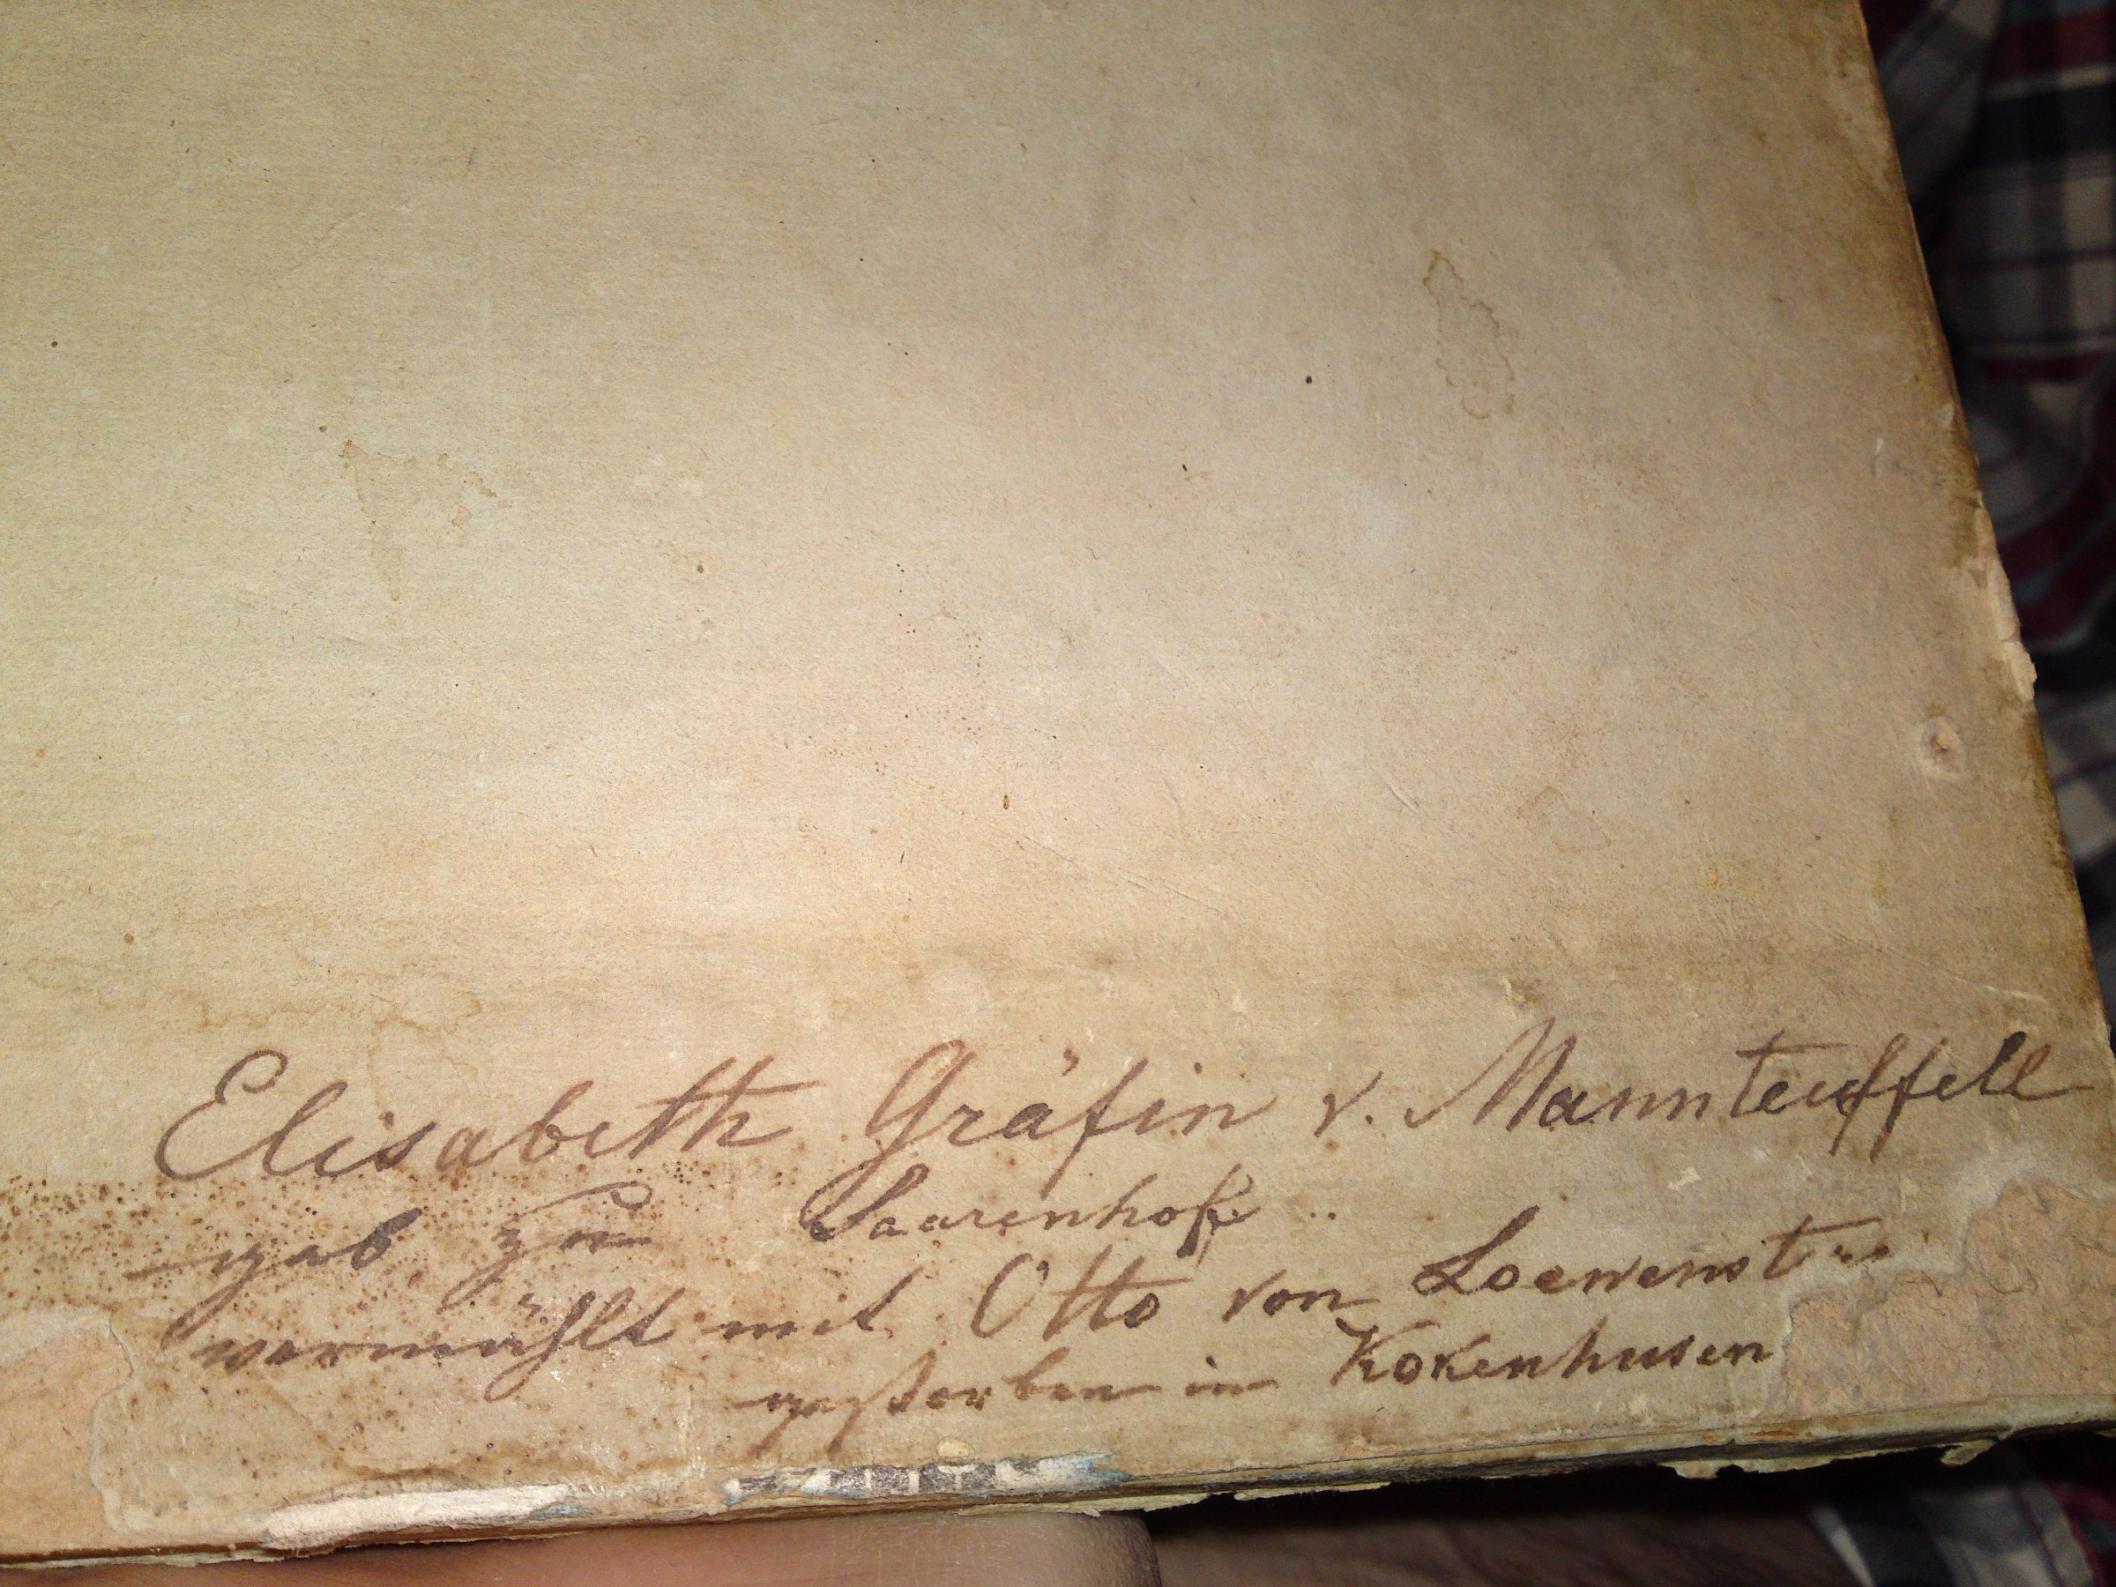 Elisabeth Gräfin v. Mannteuffell
geb. zu Saarenhof..
vermählt mit Otto von Loewenstern
gestorben in Kokenhusen